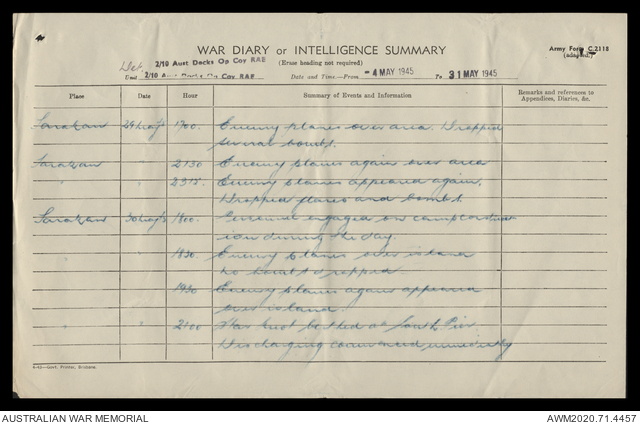 WAR DIARY or INTELLIGENCE SUMMARY
(Erase heading not required)
Army Form C.2118
(adapted)
Det. 2/10 Aust Docks Op Coy RAE
Unit 2/10 Aust Docks Op Coy RAE
Date and Time—From -4 MAY 1945 To 31 MAY 1945
Place Date Hour Summary of Events and Information Remarks and references to Appendices, Diaries, &c.
Tarakan 29 May 1700. Enemy planes over area. Dropped
several bombs.
Tarakan " 2130 Enemy planes again over area
" " Enemy planes appeared again.
Dropped flares and bombs.
Tarakan 30 May 1800. Personnel engaged on camp construct
ion during the day.
1830. Enemy planes over island
no bombs dropped.
1930 Enemy planes again appeared
over island.
" " 2100 berthed at South Pier.
Discharging commenced immediately
4-43—Govt. Printer, Brisbane.
AUSTRALIAN WAR MEMORIAL
AWM2020.71.4457